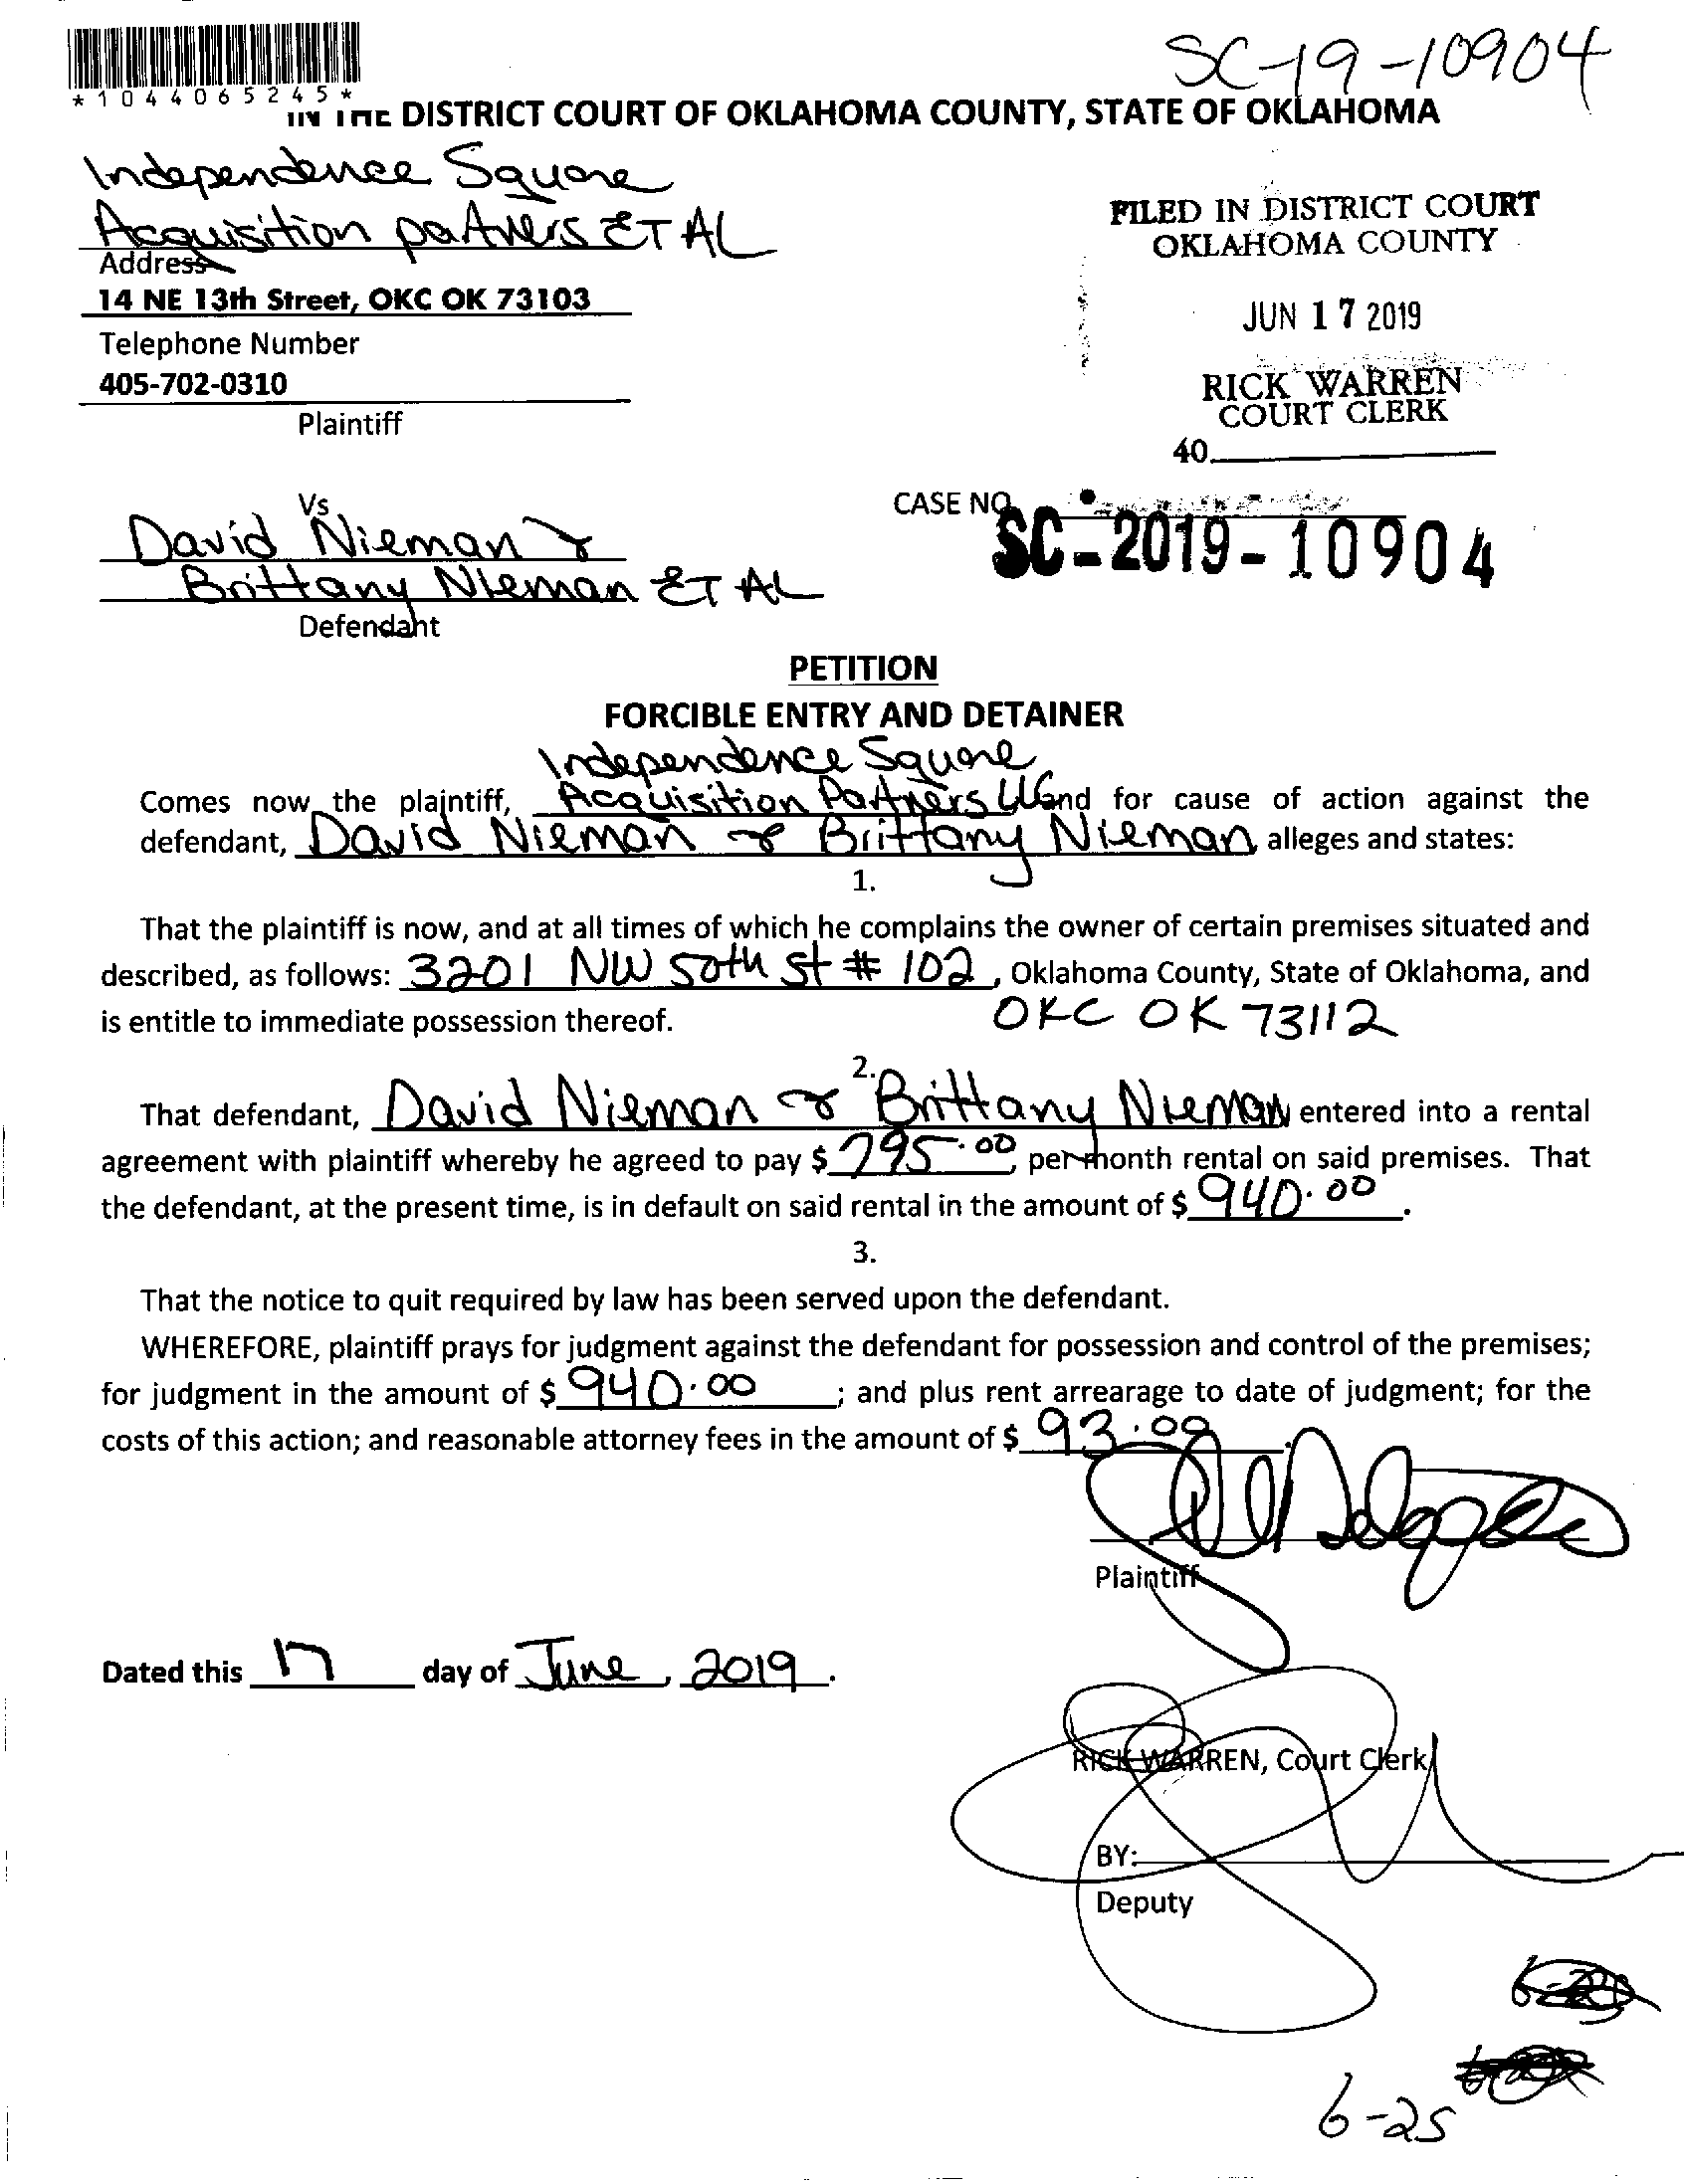 SC-19-10904
*1044065245*
IN THE DISTRICT COURT OF OKLAHOMA COUNTY, STATE OF OKLAHOMA
Independence Square
Acquisition partners ET AL
Address
14 NE 13th Street, OKC OK 73103
Telephone Number
405-702-0310
Plaintiff
FILED IN DISTRICT COURT
OKLAHOMA COUNTY
JUN 17 2019
RICK WARREN
COURT CLERK
40
Vs
David Nieman &
Brittany Nieman ET AL
Defendant
CASE NO.
SC-2019-10904
PETITION
FORCIBLE ENTRY AND DETAINER
Independence Square
Comes now the plaintiff, Acquisition Partners LLC and for cause of action against the
defendant, David Nieman & Brittany Nieman alleges and states:
1.
That the plaintiff is now, and at all times of which he complains the owner of certain premises situated and
described, as follows: 3201 NW 50th St # 102, Oklahoma County, State of Oklahoma, and
is entitle to immediate possession thereof. OKC OK 73112
2.
That defendant, David Nieman & Brittany Nieman entered into a rental
agreement with plaintiff whereby he agreed to pay $ 795.00 per month rental on said premises. That
the defendant, at the present time, is in default on said rental in the amount of $ 940.00.
3.
That the notice to quit required by law has been served upon the defendant.
WHEREFORE, plaintiff prays for judgment against the defendant for possession and control of the premises;
for judgment in the amount of $ 940.00; and plus rent arrearage to date of judgment; for the
costs of this action; and reasonable attorney fees in the amount of $ 93.00.
Plaintiff
Dated this 17 day of June, 2019.
RICK WARREN, Court Clerk
BY:
Deputy
6-25